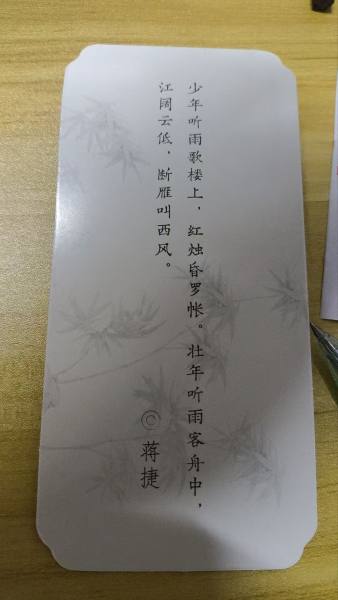 少年听雨歌楼上，红烛昏罗帐。壮年听雨客舟中，
江阔云低，断雁叫西风。
◎蒋捷